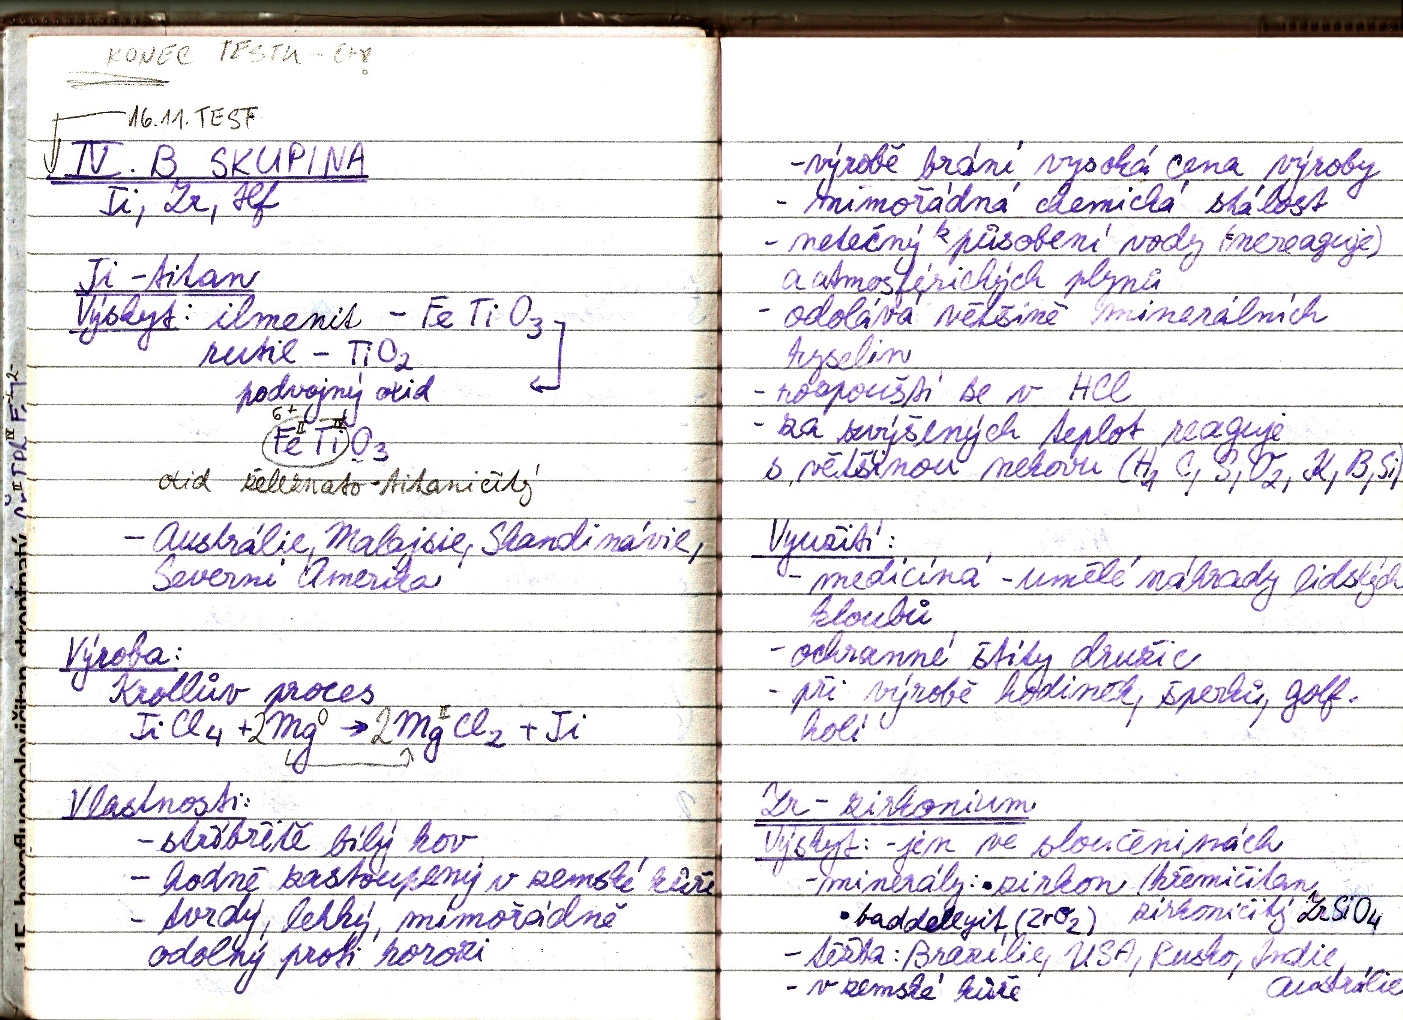 KONEC TESTU -
16.11. TEST
IV. B SKUPINA
Ti, Zr, Hf
Ti - titan
Výskyt: ilmenit - FeTiO3
rutil - TiO2
podvojný oxid
6+
II IV
FeTiO3
oxid železnato-titaničitý
- Austrálie, Malajsie, Skandinávie,
Severní Amerika
Výroba:
Krollův proces
TiCl4 + 2Mg0 → 2MgIICl2 + Ti
Vlastnosti:
- stříbřitě bílý kov
- hodně zastoupený v zemské kůře
- tvrdý, lehký, mimořádně
odolný proti korozi
- výrobě brání vysoká cena výroby
- mimořádná chemická stálost
- netečný k působení vody (nereaguje)
a atmosférických plynů
- odolává většině minerálních
kyselin
- rozpouští se v HCl
- za zvýšených teplot reaguje
s většinou nekovů (H, C, S, O2, X, B, Si)
Využití:
- medicína - umělé náhrady lidských
kloubů
- ochranné štíty družic
- při výrobě hodinek, šperků, golf.
holí
Zr - zirkonium
Výskyt: - jen ve sloučeninách
- minerály: • zirkon /křemičitan
zirkoničitý ZrSiO4
• baddeleyit (ZrO2)
- těžba: Brazílie, USA, Rusko, Indie,
Austrálie
- v zemské kůře